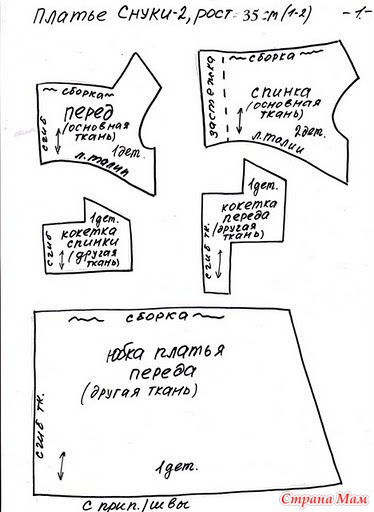 Платье Снуки-2, рост-35см(1-2) -1-
~ сборка ~
перед
(основная
ткань)
1дет.
сгиб
л. талии
~ сборка ~
застежка
спинка
(основная
ткань)
2дет.
л. талии
1дет.
кокетка
спинки
(другая
ткань)
сгиб
1дет.
кокетка
переда
(другая
ткань)
сгиб тк.
~ сборка ~
юбка платья
переда
(другая ткань)
сгиб тк.
1дет.
с прип./швы
Страна Мам